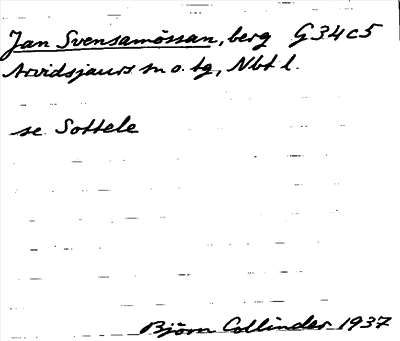 Jan Svensamössan, berg G34c5
Arvidsjaurs sn o. tg, Nbt l.
se Sottele
Björn Collinder 1937